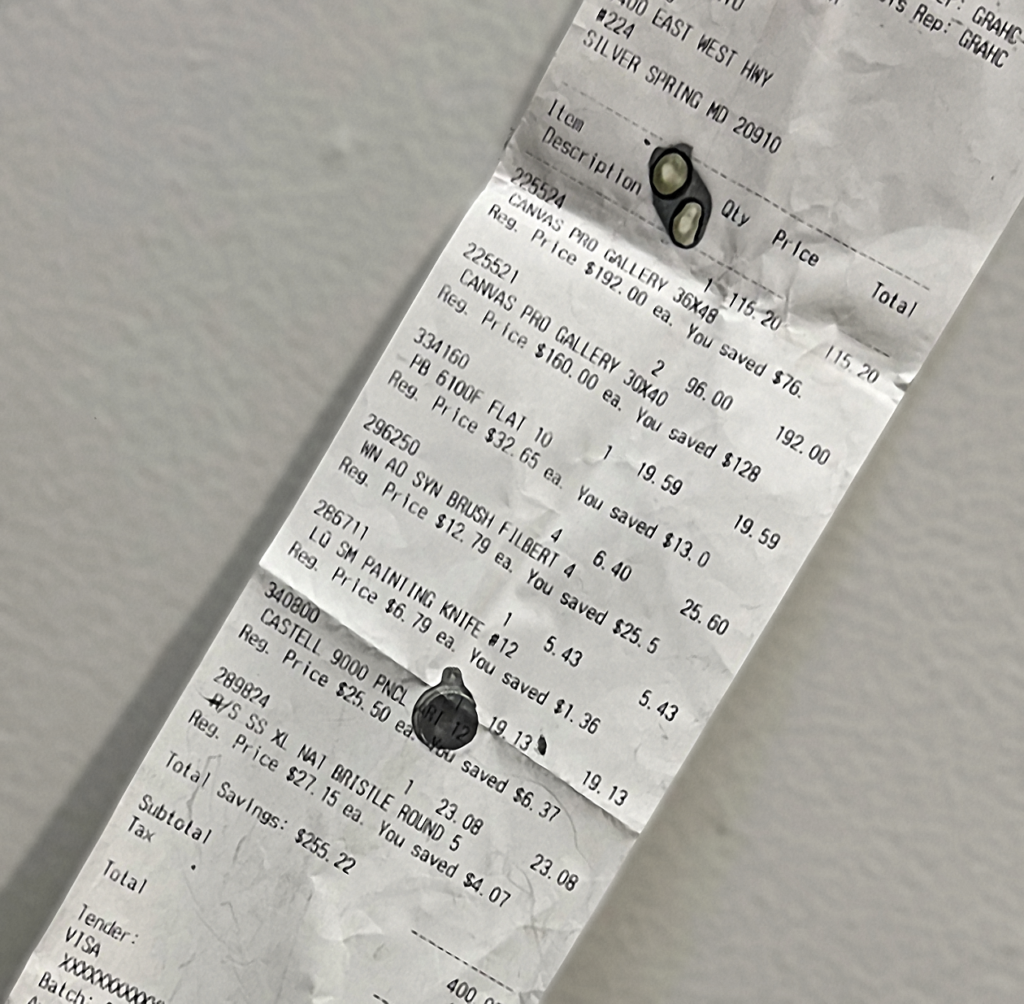 Rep: GRAHC
EAST WEST HWY
#224
SILVER SPRING MD 20910
Item
Description Qty Price Total
225524
CANVAS PRO GALLERY 36X48
1 115.20 115.20
Reg. Price $192.00 ea. You saved $76.
225521
CANVAS PRO GALLERY 30X40
2 96.00 192.00
Reg. Price $160.00 ea. You saved $128
334160
PB 6100F FLAT 10
1 19.59 19.59
Reg. Price $32.65 ea. You saved $13.0
296250
WN AO SYN BRUSH FILBERT 4
4 6.40 25.60
Reg. Price $12.79 ea. You saved $25.5
286711
LQ SM PAINTING KNIFE #12
1 5.43 5.43
Reg. Price $6.79 ea. You saved $1.36
340800
CASTELL 9000 PNCL 12
19.13 19.13
Reg. Price $25.50 ea. You saved $6.37
289824
R/S SS XL NAT BRISTLE ROUND 5
1 23.08 23.08
Reg. Price $27.15 ea. You saved $4.07
Total Savings: $255.22
Subtotal 400.
Tax
Total
Tender:
VISA
Batch: